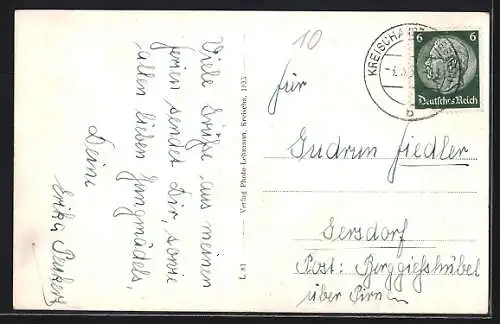 Viele Grüße aus meinen
Ferien sendet Dir, sowie
allen lieben Jungmädels,
Deine
Erika
L 81 Verlag Photo-Lehmann, Kreischa, 1935
10
KREISCHA
b
6 6
Deutsches Reich
für
Gudrun Fiedler
Gersdorf
Post: Berggießhübel
über Pirna